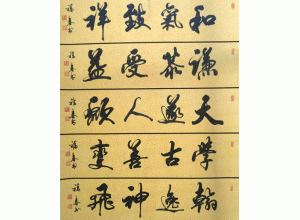 和氣致祥
謙恭受益
天遂人願
學古善變
翰逸神飛